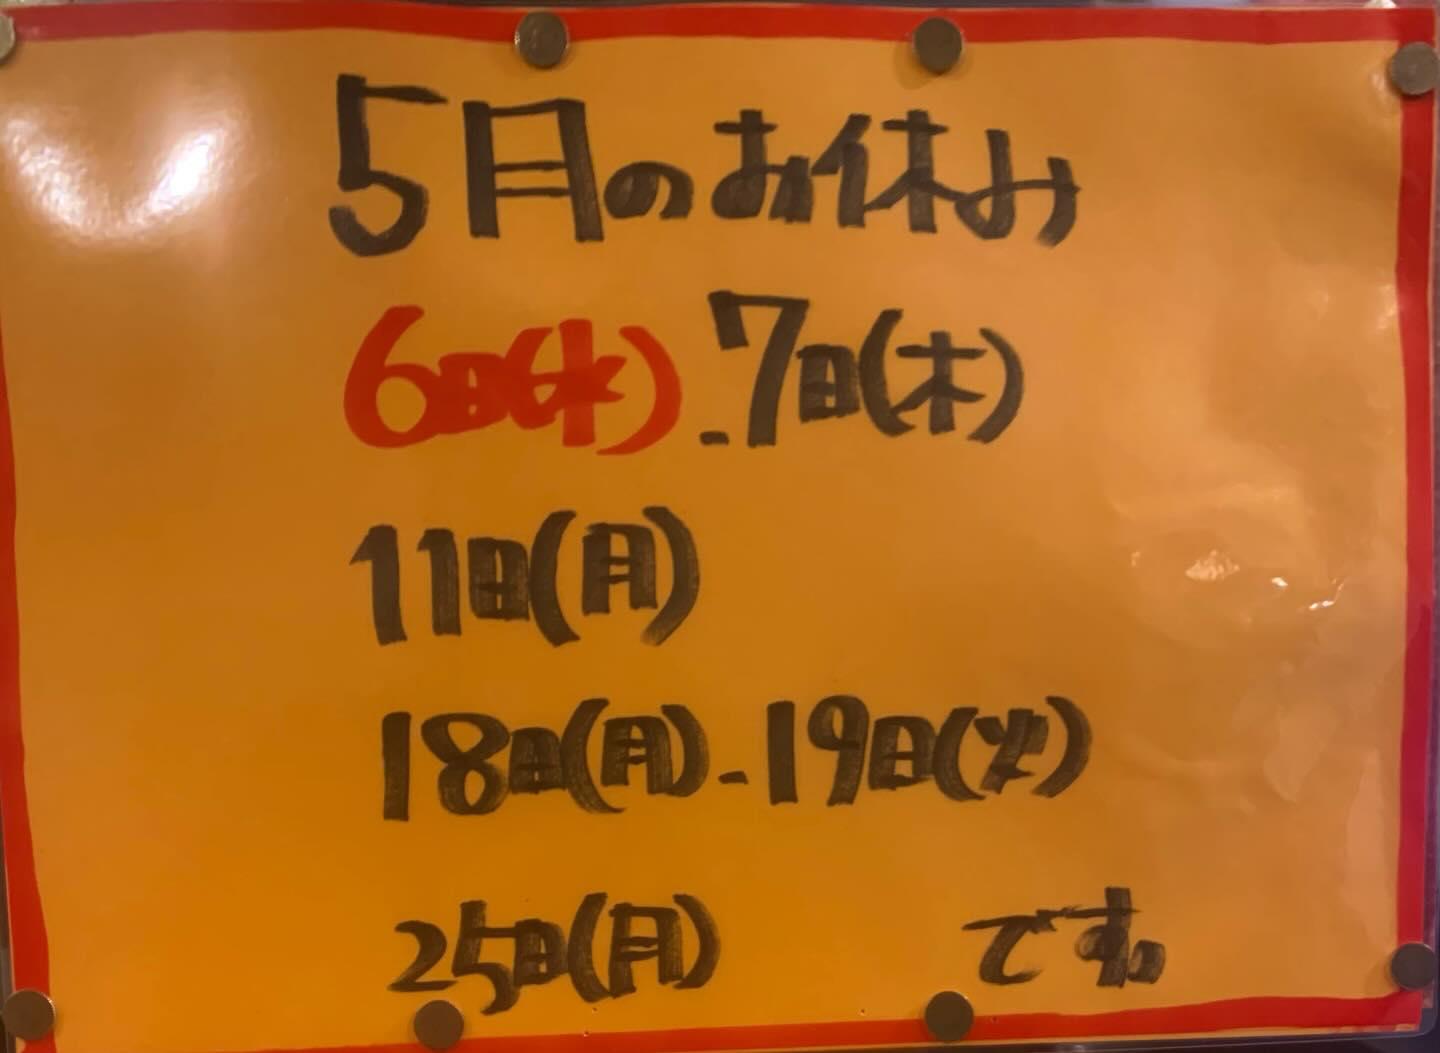 5月のお休み
6日(水)-7日(木)
11日(月)
18日(月)-19日(火)
25日(月) です。